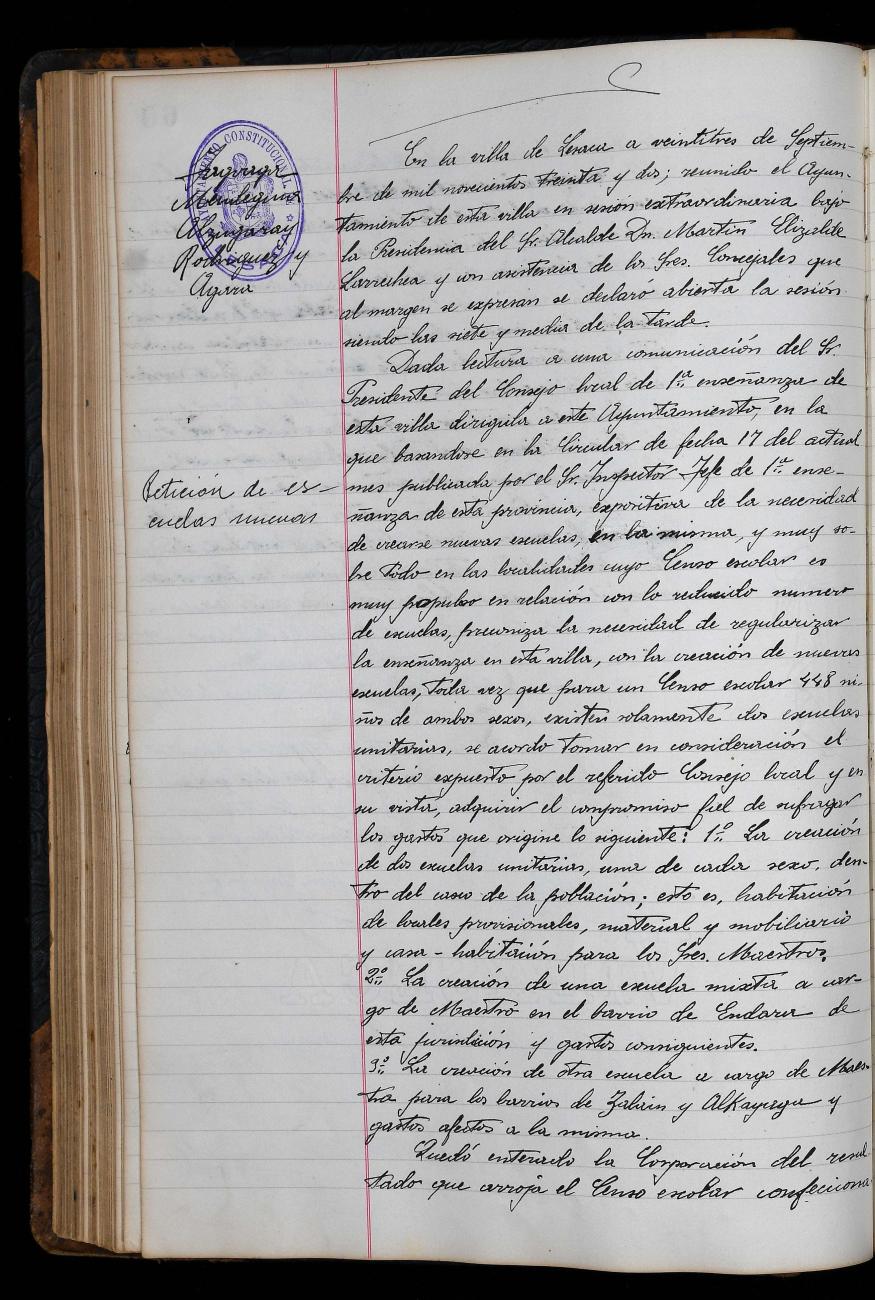 AYUNTAMIENTO CONSTITUCIONAL
Mendeguia
Alzugaray
Rodriguez y
Agara
En la villa de Lesaca a veintitres de Septiem-
bre de mil novecientos treinta y dos; reunido el Ayun-
tamiento de esta villa en sesión extraordinaria bajo
la Presidencia del Sr. Alcalde Dn. Martin Elizalde
Larrechea y con asistencia de los Sres. Concejales que
al margen se expresan se declaró abierta la sesión
siendo las siete y media de la tarde.
Dada lectura a una comunicación del Sr.
Presidente del Consejo local de 1ª enseñanza de
esta villa dirigida a este Ayuntamiento, en la
que basandose en la Circular de fecha 17 del actual
Petición de es-
cuelas nuevas
mes publicada por el Sr. Inspector Jefe de 1ª ense-
ñanza de esta provincia, expositiva de la necesidad
de crearse nuevas escuelas, en la misma, y muy so-
bre todo en las localidades cuyo Censo escolar es
muy populso en relación con lo reducido numero
de escuelas, preconiza la necesidad de regularizar
la enseñanza en esta villa, con la creación de nuevas
escuelas, toda vez que para un Censo escolar 448 ni-
ños de ambos sexos, existen solamente dos escuelas
unitarias, se acordo tomar en consideración el
criterio expuesto por el referido Consejo local y en
su vista, adquirir el compromiso fiel de sufragar
los gastos que origine lo siguiente: 1º La creación
de dos escuelas unitarias, una de cada sexo, den-
tro del casco de la población; esto es, habitación
de locales provisionales, material y mobiliario
y casa-habitación para los Sres. Maestros.
2º La creación de una escuela mixta a car-
go de Maestro en el barrio de Endara de
esta jurisdición y gastos consiguientes.
3º La creación de otra escuela a cargo de Maes-
tra para los barrios de Zalain y Alkayaga y
gastos afectos a la misma.
Quedó enterado la Corporación del resul-
tado que arroja el Censo escolar confecciona-